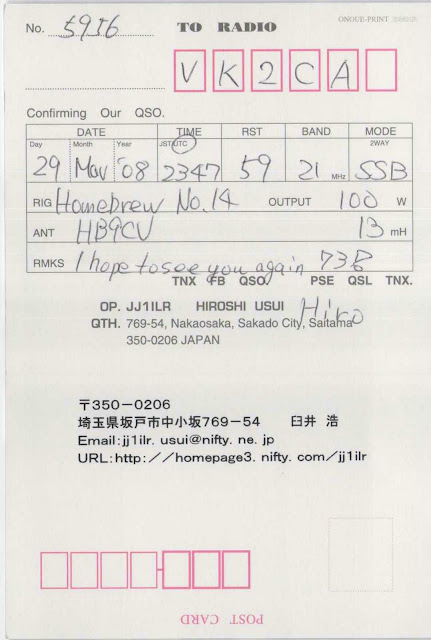 ONOUE-PRINT
No. 5956 TO RADIO
V K 2 C A
Confirming Our QSO.
DATE TIME RST BAND MODE
Day Month Year JST/UTC 2WAY
29 Nov '08 2347 59 21 MHz SSB
RIG Homebrew No.14 OUTPUT 100 W
ANT HB9CV 13 mH
RMKS I hope to see you again 73
TNX FB QSO. PSE QSL TNX.
OP. JJ1ILR HIROSHI USUI Hiro
QTH. 769-54, Nakaosaka, Sakado City, Saitama
350-0206 JAPAN
〒350-0206
埼玉県坂戸市中小坂769-54 臼井 浩
Email:jj1ilr. usui@nifty. ne. jp
URL:http://homepage3. nifty. com/jj1ilr
POST CARD